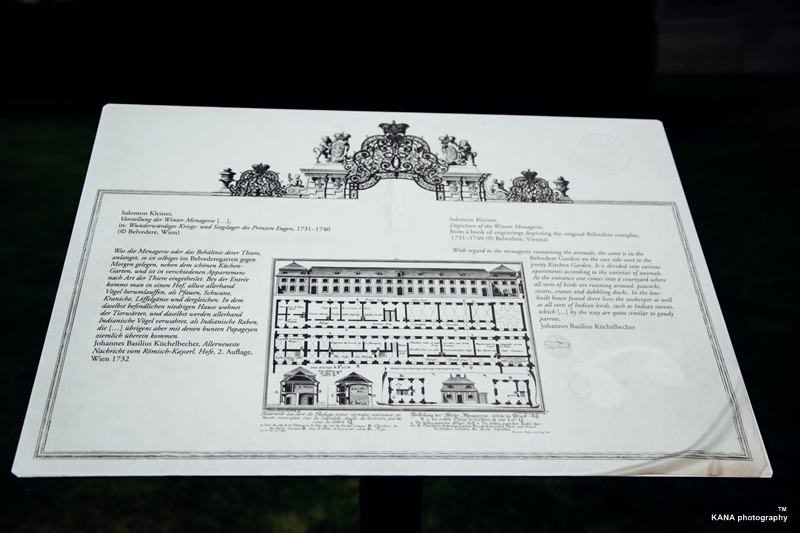 Salomon Kleiner,
Vorstellung der Winter Menagerie […],
in: Wunderwürdiges Kriegs- und Siegslager des Prinzen Eugen, 1731–1740
(© Belvedere, Wien)
Was die Menagerie oder das Behältnis derer Thiere,
anlanget, so ist selbiges im Belvederegarten gegen
Morgen gelegen, neben dem schönen Küchen-
Garten, und ist in verschiedenen Appartemens
nach Art der Thiere eingetheilet. Bey der Entrée
kommt man in einen Hof, allwo allerhand
Vögel herumlauffen, als Pfauen, Schwane,
Kraniche, Löffelgänse und dergleichen. In dem
daselbst befindlichen niedrigen Hause wohnet
der Tierwärter, und daselbst werden allerhand
Indianische Vögel verwahret, als Indianische Raben,
die […] übrigens aber mit denen bunten Papageyen
ziemlich überein kommen.
Johannes Basilius Küchelbecher, Allerneueste
Nachricht vom Römisch-Kayserl. Hofe, 2. Auflage,
Wien 1732
Salomon Kleiner,
Depiction of the Winter Menagerie,
from a book of engravings depicting the original Belvedere complex,
1731–1740 (© Belvedere, Vienna)
With regard to the menagerie containing the animals, the same is in the
Belvedere Garden on the east side next to the
pretty Kitchen Garden. It is divided into various
apartments according to the varieties of animals.
At the entrance one comes into a courtyard where
all sorts of birds are running around: peacocks,
swans, cranes and dabbling ducks. In the low-
built house found there lives the zookeeper as well
as all sorts of Indian birds, such as Indian ravens,
which […] by the way are quite similar to gaudy
parrots.
Johannes Basilius Küchelbecher
KANA photography
TM